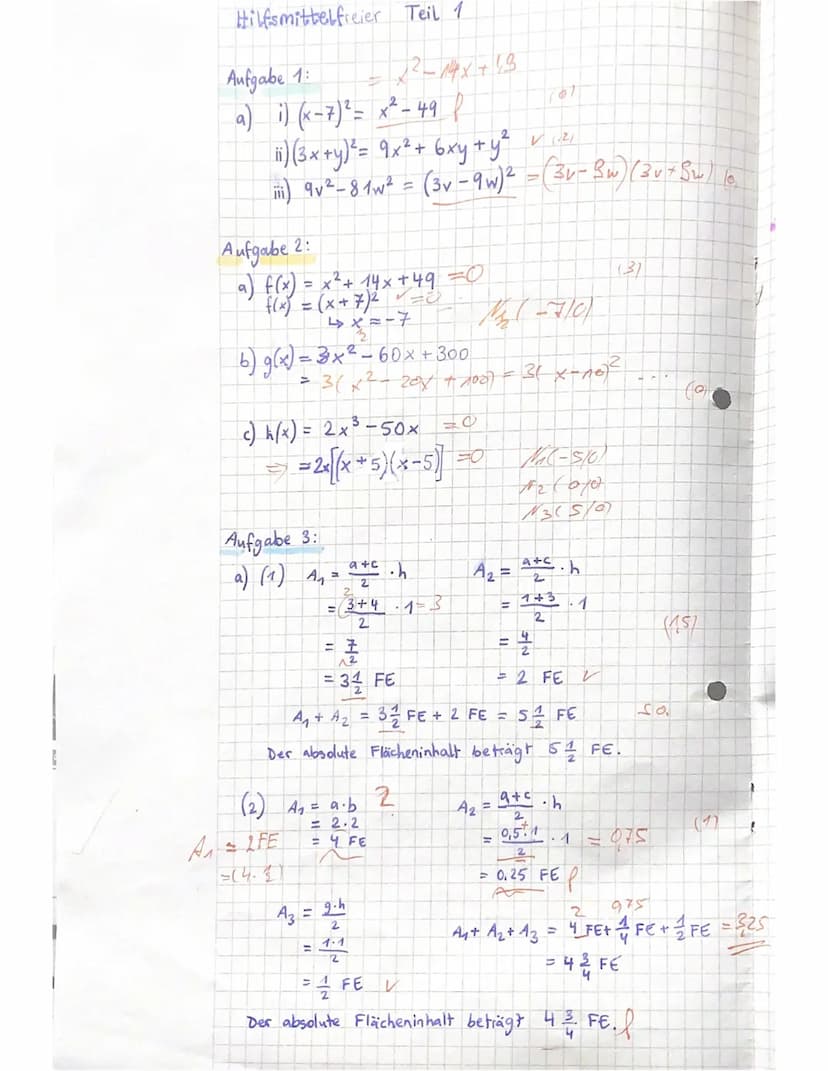 Hilfsmittelfreier Teil 1
Aufgabe 1:
= x² - 14x + 49
a) i) (x-7)² = x² - 49 f (0)
ii) (3x+y)² = 9x² + 6xy + y² ✓ (2)
iii) 9v² - 81w² = (3v - 9w)² = (3v - 9w)(3v + 9w)
Aufgabe 2:
a) f(x) = x² + 14x + 49 = 0 (3)
f(x) = (x+7)² ✓ = 0
↳ x = -7 N½(-7|0)
b) g(x) = 3x² - 60x + 300
= 3(x² - 20x + 100) = 3(x-10)² ... (0)
c) h(x) = 2x³ - 50x = 0
⇒ = 2x[(x+5)(x-5)] = 0 N1(-5|0)
N2(0|0)
N3(5|0)
Aufgabe 3:
a) (1) A₁ = a+c/2 · h A₂ = a+c/2 · h
2
= 3+4/2 · 1 = 3 = 1+3/2 · 1
= 7/2 = 4/2 (1,5)
= 3 1/2 FE = 2 FE ✓
A₁ + A₂ = 3 1/2 FE + 2 FE = 5 1/2 FE 5.0.
Der absolute Flächeninhalt beträgt 5 1/2 FE.
(2) A₁ = a·b 2 A₂ = a+c/2 · h
= 2·2 = 0,5+1/2 · 1 = 0,75 (1)
A₁ = 2FE = 4 FE = 0,25 FE f
A₃ = g·h/2 2 0,75
= 1·1/2 A₁ + A₂ + A₃ = 4 FE + 1/4 FE + 1/2 FE = 3,25
= 1/2 FE ✓ = 4 3/4 FE
Der absolute Flächeninhalt beträgt 4 3/4 FE. f